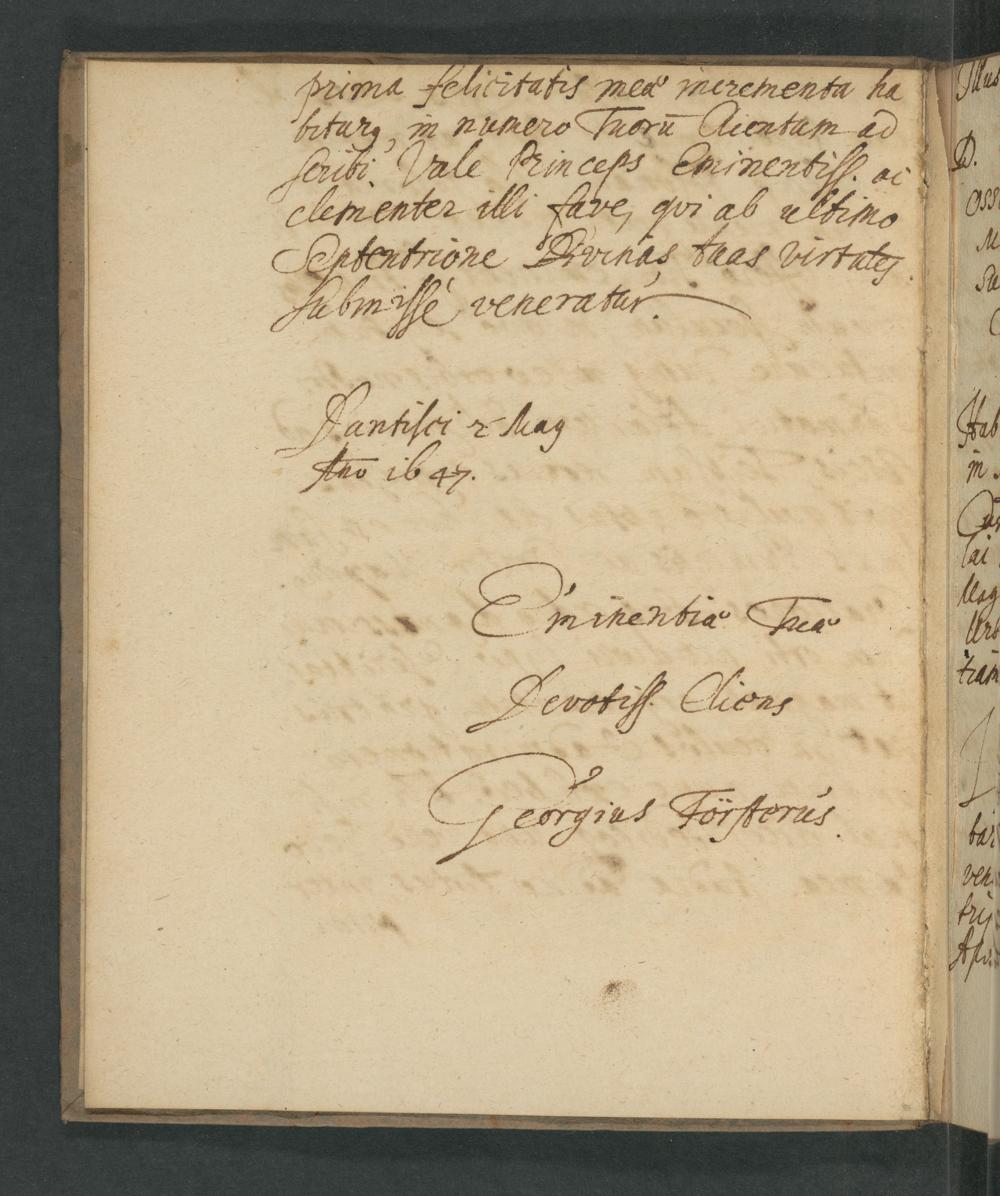 prima felicitatis meæ incrementa ha
biturq, in numero Tuorū Clientum ad
scribi. Vale Princeps Eminentiss. ac
clementer illi fave, qui ab ultimo
Septentrione Divinas tuas virtutes
submissè veneratur.
Dantisci 2 May
Año 1647.
Eminentiæ Tuæ
Devotiss. Cliens
Georgius Försterus.
D.
Hab
in
lai
Mag
tiam
bar
ven